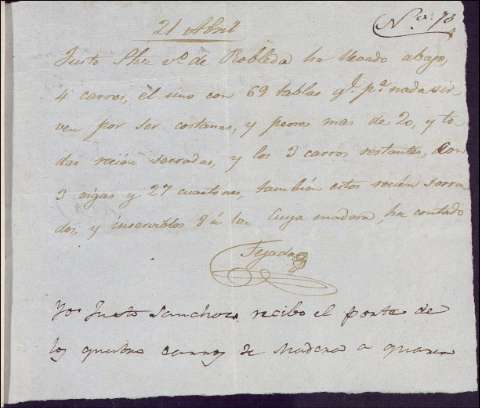 21 Abril
Nº 70
Justo Shez vº de Robleda ha llevado abajo,
4 carros, el uno con 69 tablas q.e pª nada sir
ven por ser costanas, y peores mas de 20, y to
das recien serradas, y los 3 carros restantes, con
3 vigas y 27 cuartones, tambien estos recien serra
dos, y inservibles cuya madera ha contado
Tejada
Yo Justo Sanchez recibo el porte de
los quatro carros de Madera a quaren